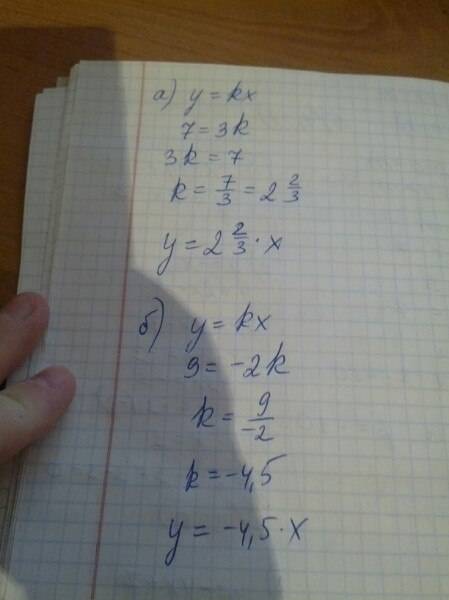 а) y = kx
7 = 3k
3k = 7
k = 7/3 = 2 2/3
y = 2 2/3 · x
б) y = kx
9 = -2k
k = 9/-2
k = -4,5
y = -4,5 · x